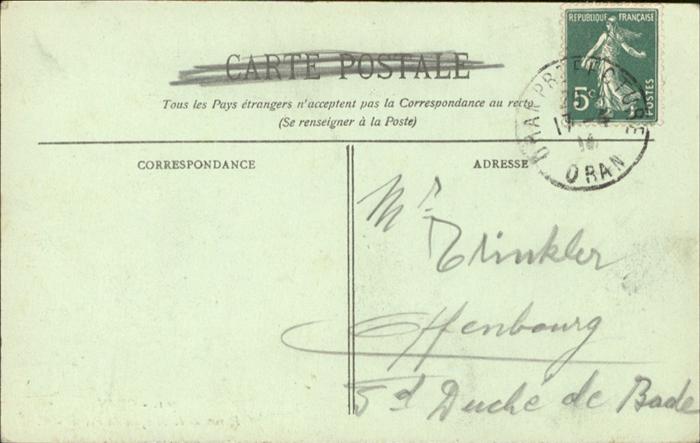 RÉPUBLIQUE FRANÇAISE
5c POSTES
CARTE POSTALE
Tous les Pays étrangers n'acceptent pas la Correspondance au recto
(Se renseigner à la Poste)
ORAN
CORRESPONDANCE
ADRESSE
Mr
Trinkler
Offenbourg
Gd Duché de Bade